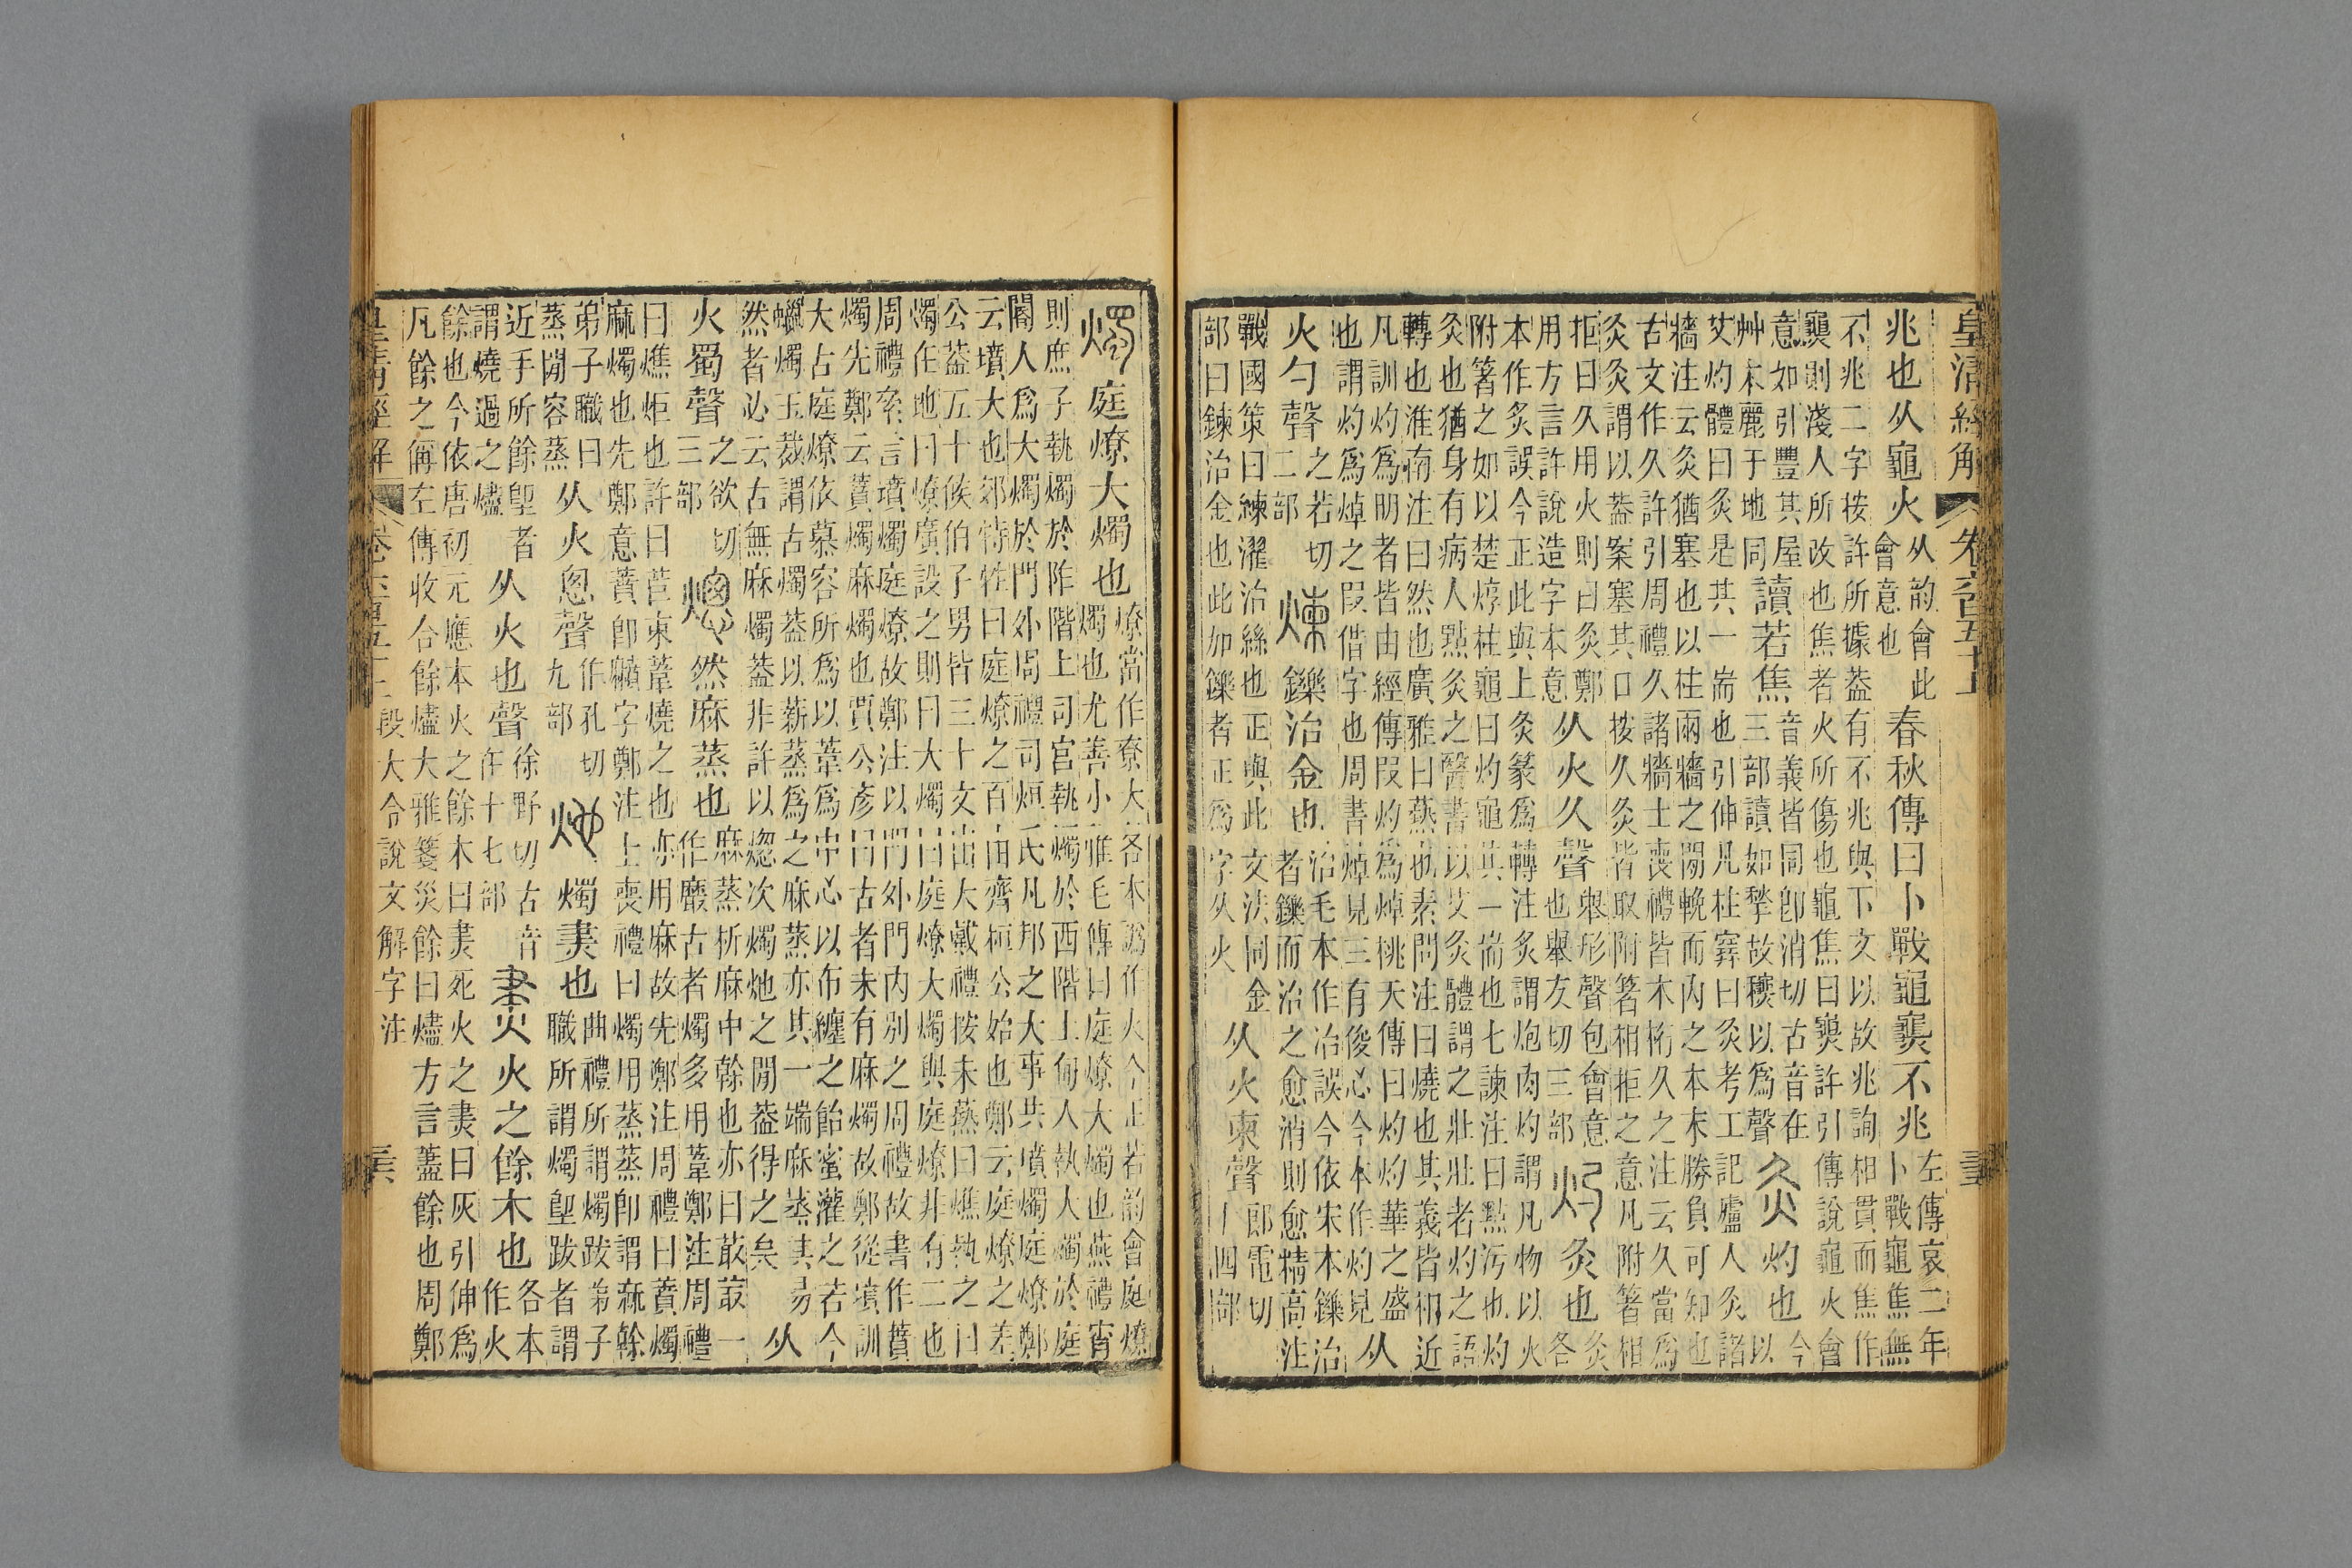 皇清經解
兆也从龜火从韵會此會意也春秋傳曰卜戰龜𤓫不兆左傳哀二年卜戰龜焦無
不兆二字按許所據葢有不兆與下文以故兆詢相貫而焦作
𤓫則淺人所改也焦者火所傷也龜焦曰𤓫許引傳說龜火會
意如引豐其屋艸木麗于地同讀若焦音義皆同卽消切古音在三部讀如揫故以爲聲灸灼也今以
艾灼體曰灸是其一耑也引伸凡柱塞曰灸考工記廬人灸諸
牆注云灸猶塞也以柱兩牆之閒輓而內之本末勝負可知也
古文作久許引周禮久諸牆士喪禮皆木桁久之注云久當爲
灸灸謂以葢案塞其口按久灸皆取附箸相拒之意凡附箸相
拒曰久用火則曰灸鄭用方言許說造字本意从火久聲舉形聲包會意也舉友切三部灼灸也灸各
本作炙誤今正此與上灸篆爲轉注炙謂炮肉灼謂凡物以火
附箸之如以楚焞柱龜曰灼龜其一耑也七諫注曰點污也灼
灸也猶身有病人點灸之醫書以艾灸體謂之壯壯者灼之語
轉也淮南注曰然也廣雅曰爇也素問注曰燒也其義皆相近
凡訓灼爲明者皆由經傳叚灼爲焯桃夭傳曰灼灼華之盛
也謂灼爲焯之叚借字也周書焯見三有俊心今本作灼見从
火勺聲之若切二部煉鑠治金也治毛本作冶誤今依宋本鑠治者鑠而治之愈消則愈精高注
戰國策曰練濯治絲也正與此文法同金部曰鍊治金也此加鑠者正爲字从火从火柬聲郎電切十四部
燭庭燎大燭也燎當作尞大各本譌作火今正若韵會庭燎燭也尤善小雅毛傳曰庭燎大燭也燕禮宵
則庶子執燭於阼階上司宮執燭於西階上甸人執大燭於庭
閽人爲大燭於門外周禮司烜氏凡邦之大事共墳燭庭燎鄭
云墳大也郊特牲曰庭燎之百由齊桓公始也鄭云庭燎之差
公葢五十侯伯子男皆三十文出大戴禮按未爇曰燋執之曰
燭在地曰燎廣設之則曰大燭曰庭燎大燭與庭燎非有二也
周禮言墳燭庭燎故鄭注以門外門內別之周禮故書作蕡
燭先鄭云蕡燭麻燭也賈公彥曰古者未有麻燭故鄭從墳訓
大古庭燎依慕容所爲以葦爲中心以布纏之飴蜜灌之若今
蠟燭玉裁謂古燭葢以薪蒸爲之麻蒸亦其一端麻蒸其易
然者必云古無麻燭葢非許以熜次燭灺之閒葢得之矣从
火蜀聲之欲切三部熜然麻蒸也麻蒸析麻中榦也亦曰菆菆一作黀古者燭多用葦鄭注周禮
曰燋炬也許曰苣束葦燒之也亦用麻故先鄭注周禮曰蕡燭
麻燭也先鄭意蕡卽黂字鄭注士喪禮曰燭用蒸蒸卽謂麻榦
弟子職曰蒸閒容蒸从火悤聲作孔切九部灺燭㶳也曲禮所謂燭跋弟子職所謂燭堲跋者謂
近手所餘堲者謂燒過之燼从火也聲徐野切古音在十七部㶳火之餘木也各本作火
餘也今依唐初元應本火之餘木曰㶳死火之㶳曰灰引伸爲
凡餘之偁左傳收合餘燼大雅箋災餘曰燼方言藎餘也周鄭
皇清經解 段大令說文解字注